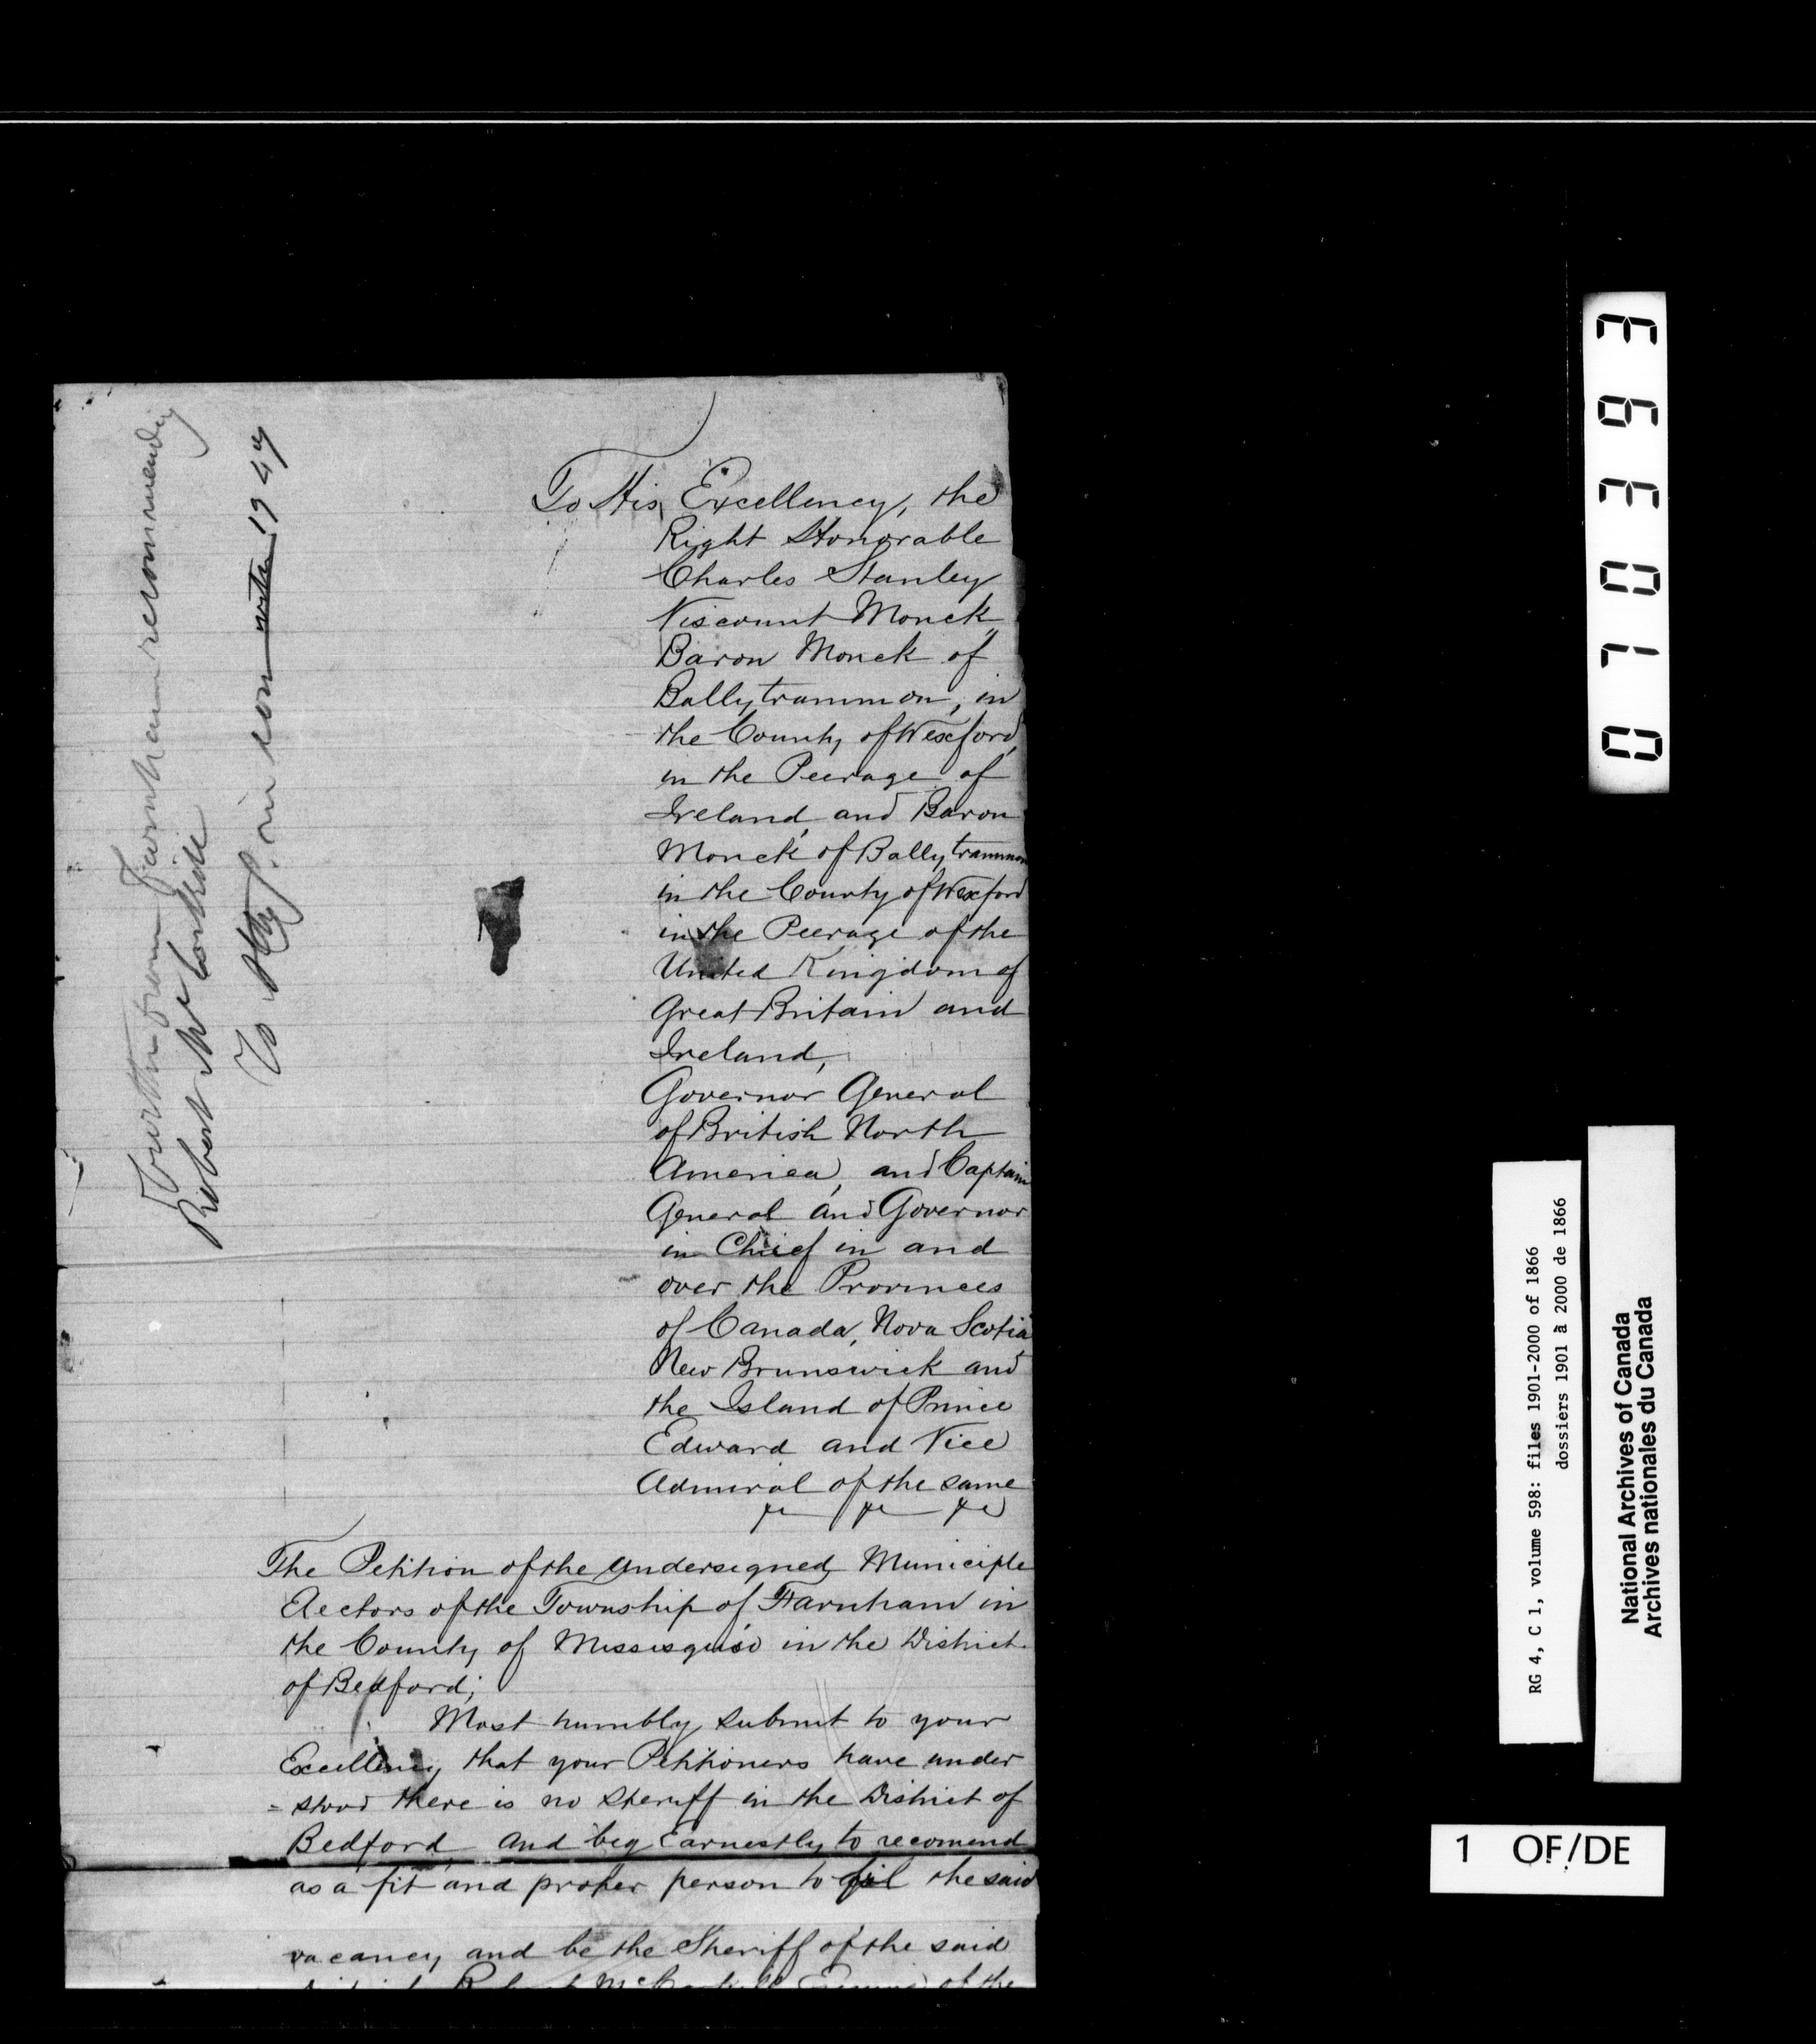 Fourth from Farnham recommending
Robert McCorkill
To Atty. in con 1947
To His Excellency, the
Right Honorable
Charles Stanley
Viscount Monck,
Baron Monck of
Ballytrammon, in
the County of Wexford,
in the Peerage of
Ireland, and Baron
Monck of Ballytrammon
in the County of Wexford
in the Peerage of the
United Kingdom of
Great Britain and
Ireland,
Governor General
of British North
America, and Captain
General and Governor
in Chief in and
over the Provinces
of Canada, Nova Scotia
New Brunswick and
the Island of Prince
Edward and Vice
Admiral of the same
&c &c &c
The Petition of the undersigned Municiple
Electors of the Township of Farnham in
the County of Missisquoi in the District
of Bedford;
Most humbly submit to your
Excellency that your Petitioners have under
= stood there is no Sheriff in the District of
Bedford, and beg Earnestly to recomend
as a fit and proper person to fil the said
vacancy and be the Sheriff of the said
Robert McCorkill of the
0103693
RG 4, C 1, volume 598: files 1901-2000 of 1866
dossiers 1901 à 2000 de 1866
National Archives of Canada
Archives nationales du Canada
1 OF/DE